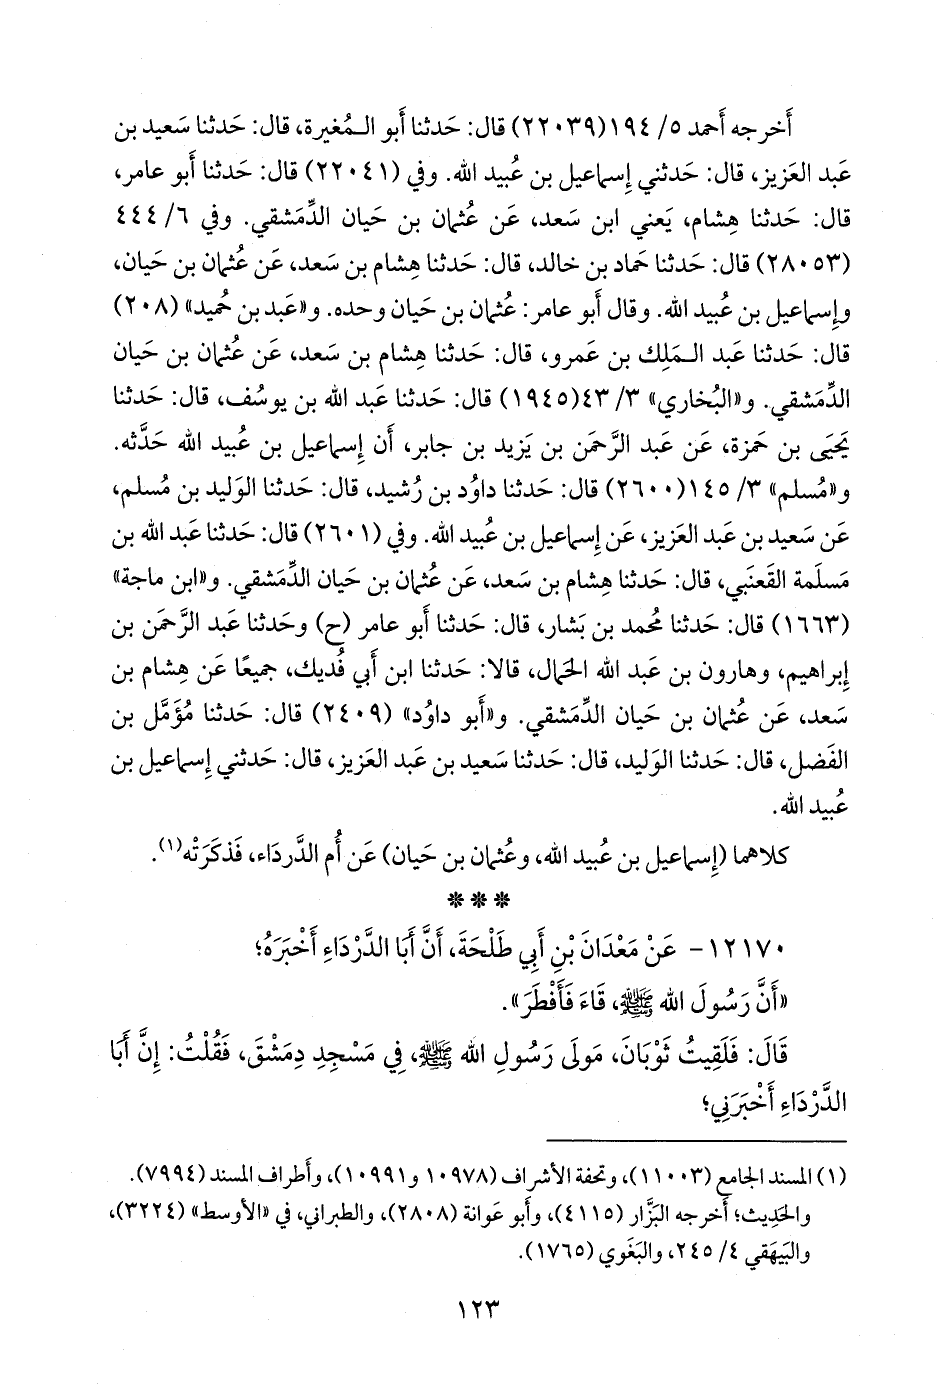 أَخرجه أَحمد ٥/ ١٩٤(٢٢٠٣٩) قال: حَدثنا أَبو الـمُغيرة، قال: حَدثنا سَعيد بن
عَبد العَزيز، قال: حَدثني إِسماعيل بن عُبيد الله. وفي (٢٢٠٤١) قال: حَدثنا أَبو عامر،
قال: حَدثنا هِشام، يَعني ابن سَعد، عَن عُثمان بن حَيان الدِّمَشقي. وفي ٦/ ٤٤٤
(٢٨٠٥٣) قال: حَدثنا حَماد بن خالد، قال: حَدثنا هِشام بن سَعد، عَن عُثمان بن حَيان،
وإِسماعيل بن عُبيد الله. وقال أَبو عامر: عُثمان بن حَيان وحده. و«عَبد بن حُميد» (٢٠٨)
قال: حَدثنا عَبد الـمَلِك بن عَمرو، قال: حَدثنا هِشام بن سَعد، عَن عُثمان بن حَيان
الدِّمَشقي. و«البُخاري» ٣/ ٤٣(١٩٤٥) قال: حَدثنا عَبد الله بن يوسُف، قال: حَدثنا
يَحيَى بن حَمزة، عَن عَبد الرَّحمَن بن يَزيد بن جابر، أَن إِسماعيل بن عُبيد الله حَدَّثه.
و«مُسلم» ٣/ ١٤٥(٢٦٠٠) قال: حَدثنا داوُد بن رُشيد، قال: حَدثنا الوَليد بن مُسلم،
عَن سَعيد بن عَبد العَزيز، عَن إِسماعيل بن عُبيد الله. وفي (٢٦٠١) قال: حَدثنا عَبد الله بن
مَسلَمة القَعنَبي، قال: حَدثنا هِشام بن سَعد، عَن عُثمان بن حَيان الدِّمَشقي. و«ابن ماجة»
(١٦٦٣) قال: حَدثنا مُحمد بن بَشار، قال: حَدثنا أَبو عامر (ح) وحَدثنا عَبد الرَّحمَن بن
إِبراهيم، وهارون بن عَبد الله الحَمال، قالا: حَدثنا ابن أَبي فُديك، جميعًا عَن هِشام بن
سَعد، عَن عُثمان بن حَيان الدِّمَشقي. و«أَبو داوُد» (٢٤٠٩) قال: حَدثنا مُؤَمَّل بن
الفَضل، قال: حَدثنا الوَليد، قال: حَدثنا سَعيد بن عَبد العَزيز، قال: حَدثني إِسماعيل بن
عُبيد الله.
كلاهما (إِسماعيل بن عُبيد الله، وعُثمان بن حَيان) عَن أُم الدَّرداء، فَذكَرَتْه(١).
* * *
١٢١٧٠- عَنْ مَعْدَانَ بْنِ أَبِي طَلْحَةَ، أَنَّ أَبَا الدَّرْدَاءِ أَخْبَرَهُ؛
«أَنَّ رَسُولَ الله ﷺ، قَاءَ فَأَفْطَرَ».
قَالَ: فَلَقِيتُ ثَوْبَانَ، مَولَى رَسُولِ الله ﷺ، فِي مَسْجِدِ دِمَشْقَ، فَقُلْتُ: إِنَّ أَبَا
الدَّرْدَاءِ أَخْبَرَنِي؛
(١) المسند الجامع (١١٠٠٣)، وتحفة الأشراف (١٠٩٧٨ و١٠٩٩١)، وأَطراف المسند (٧٩٩٤).
والحَدِيث؛ أَخرجه البَزَّار (٤١١٥)، وأَبو عَوانة (٢٨٠٨)، والطبراني، في «الأَوسط» (٣٢٢٤)،
والبَيهَقي ٤/ ٢٤٥، والبَغَوي (١٧٦٥).
١٢٣